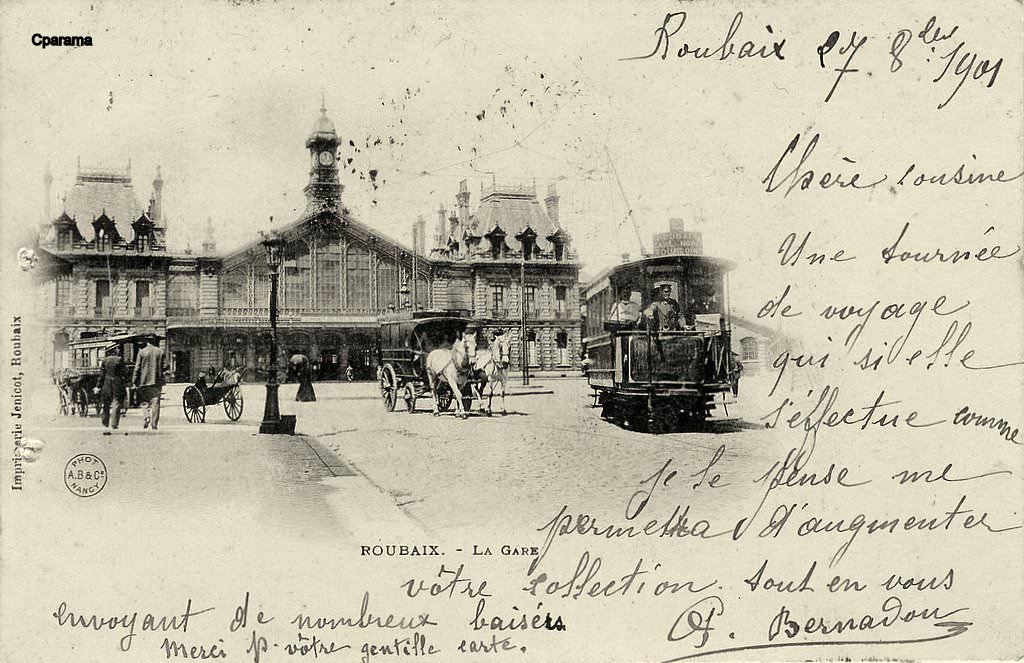 Cparama
Roubaix 27 8bre 1901
Chère Cousine
Une tournée
de voyage
qui si elle
s'éffectue comme
je le pense me
permettra d'augmenter
vôtre collection. tout en vous
envoyant de nombreux baisers
Merci p. vôtre gentille carte.
Bernadou
ROUBAIX. - LA GARE
Imprimerie Jenicot, Roubaix
PHOT
A.B & Cie
NANCY